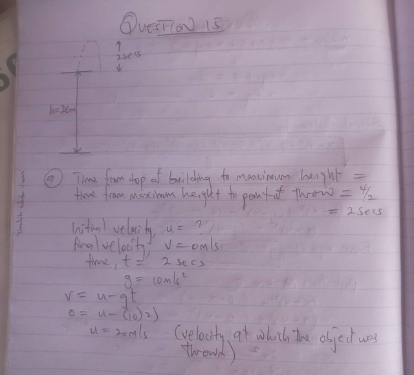 QUESTION 15
2secs
h=26m
(a) Time from top of building to maximum height =
time from maximum height to point of throw = 4/2
= 2secs
Initial velocity, u = ?
final velocity, v = 0m/s
time, t = 2secs
g = 10m/s²
v = u-gt
0 = u-(10)2)
u = 20m/s (velocity at which the object was
thrown)